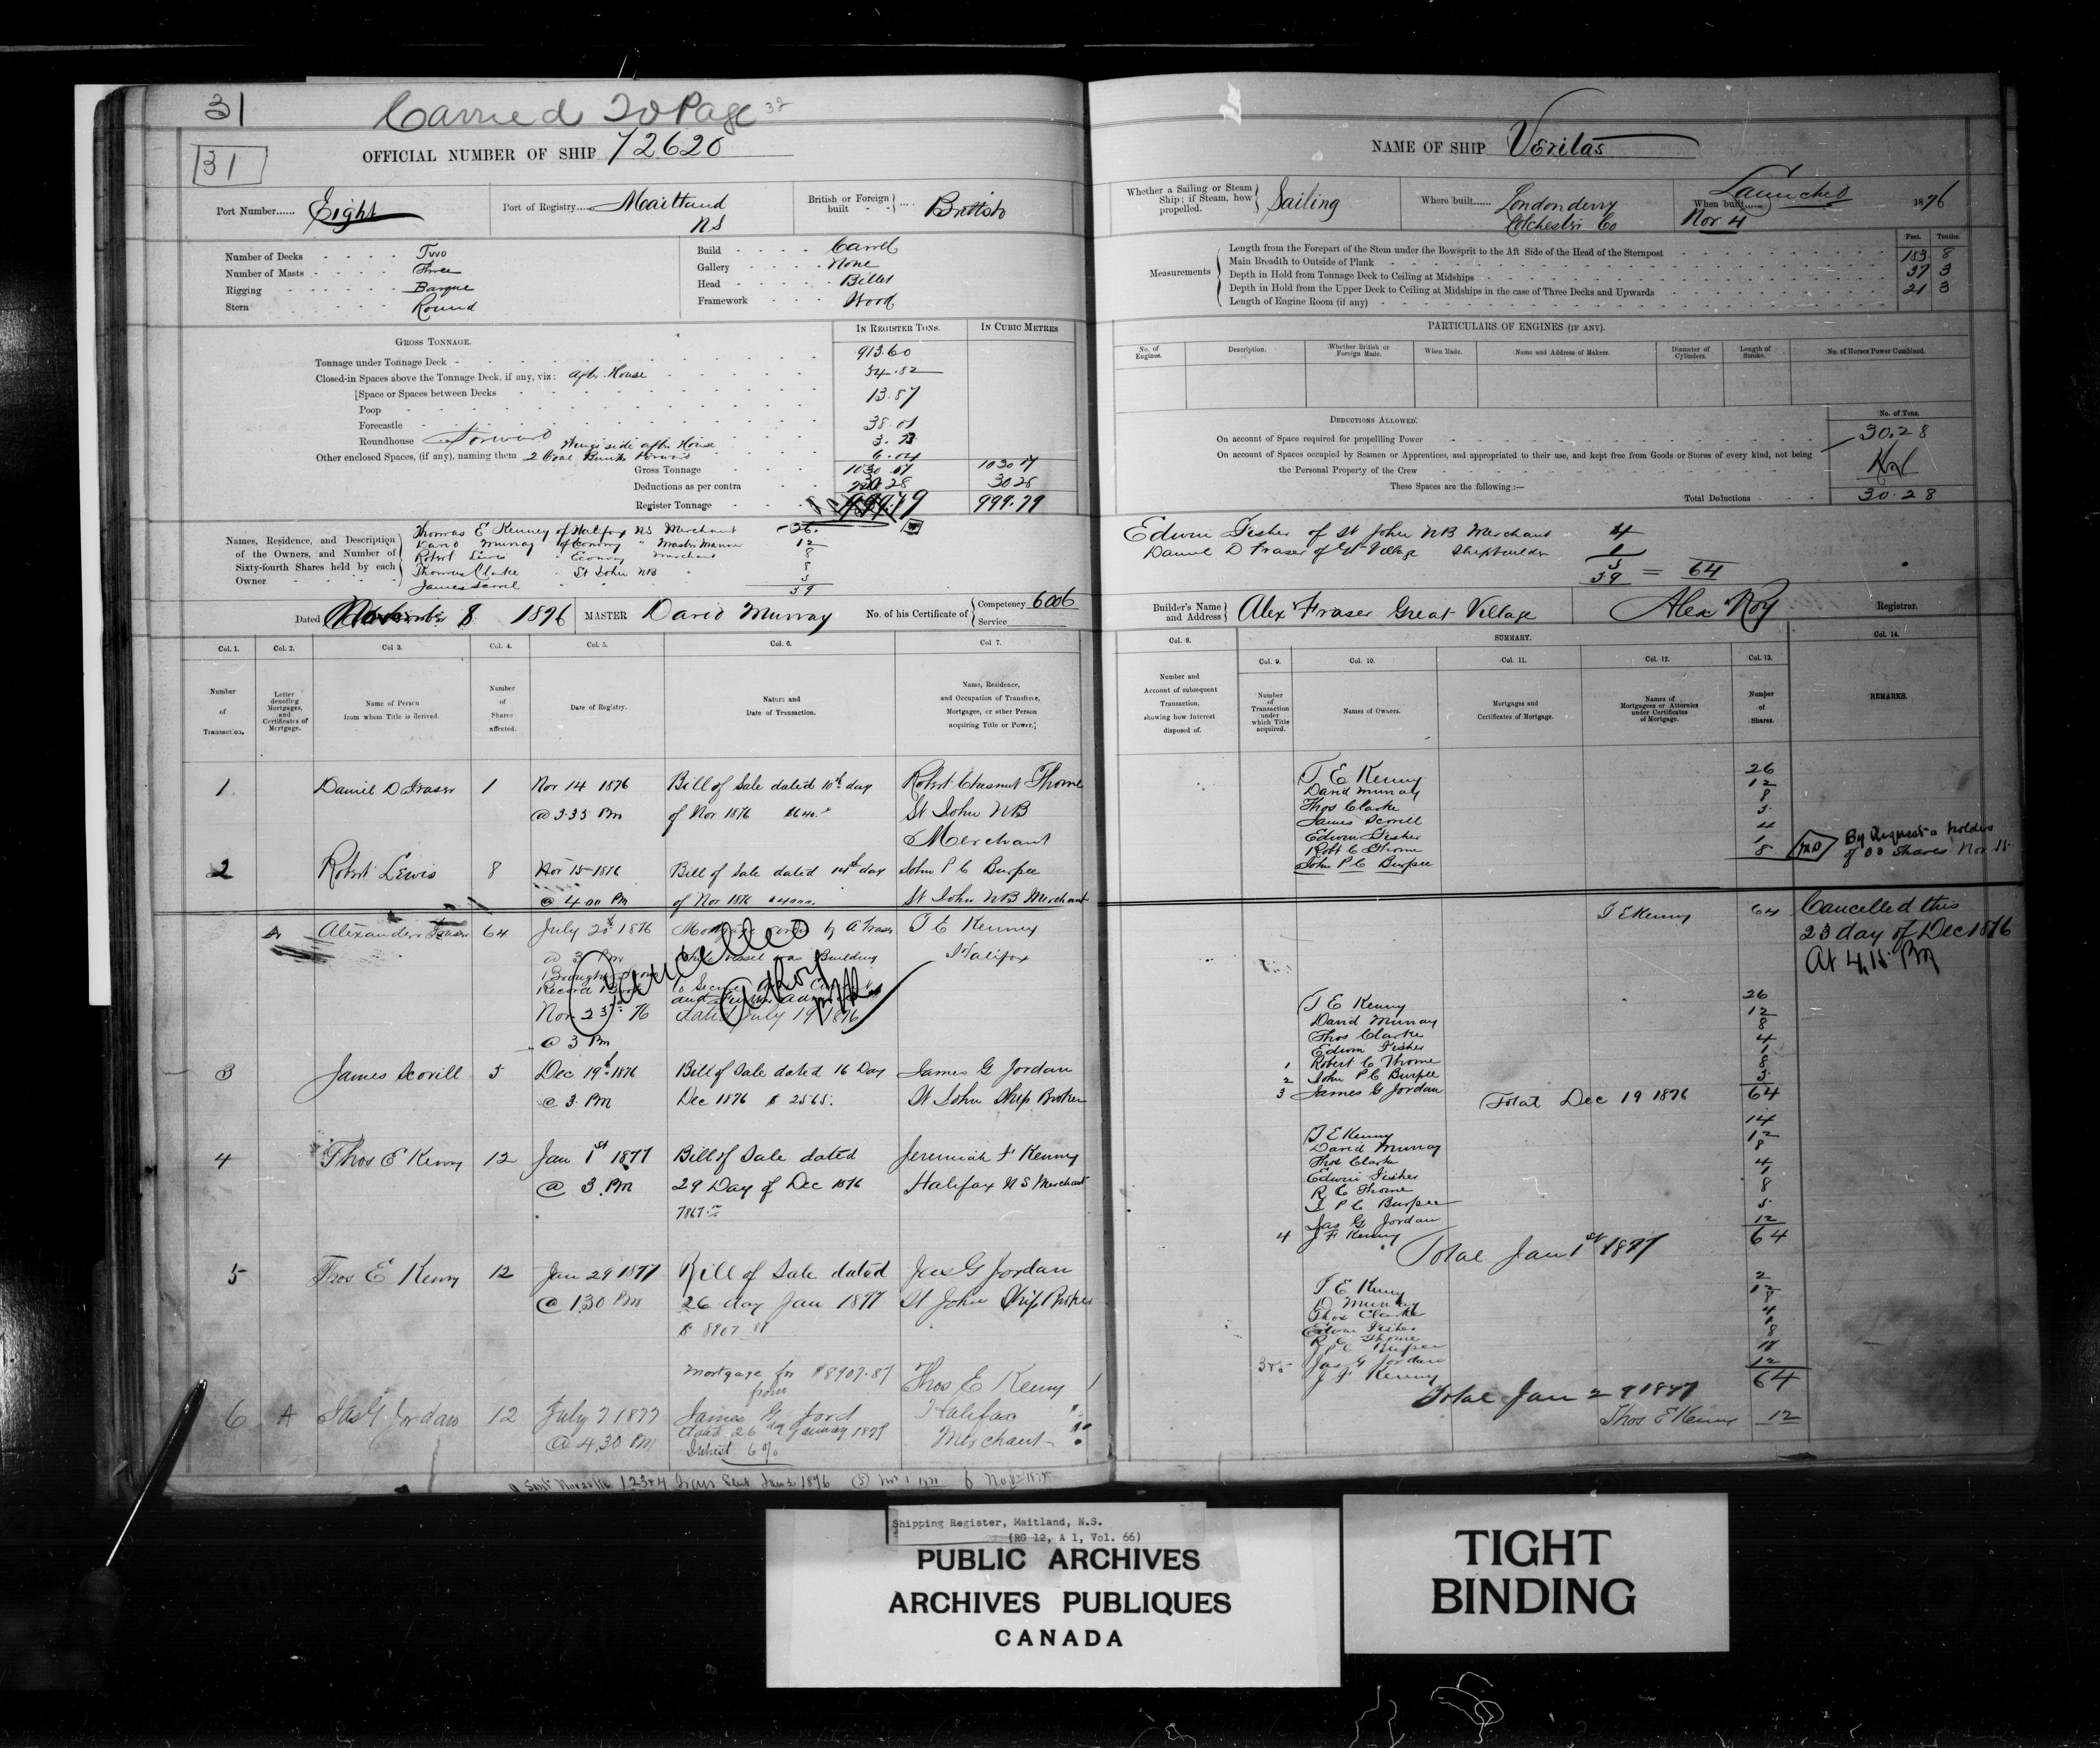 31
Carried To Page 32
31
OFFICIAL NUMBER OF SHIP 72620
Port Number...... Eight
Port of Registry.... Maitland NS
British or Foreign built British
Number of Decks Two
Number of Masts Three
Rigging Barque
Stern Round
Build Carvel
Gallery None
Head Billet
Framework Wood
GROSS TONNAGE.
IN REGISTER TONS.
IN CUBIC METRES
Tonnage under Tonnage Deck 913.60
Closed-in Spaces above the Tonnage Deck, if any, viz: After House 54.82
Space or Spaces between Decks 13.87
Poop
Forecastle 38.01
Roundhouse Forward
Other enclosed Spaces, (if any), naming them 2 Coal Bunks 6.04
Gross Tonnage 1030.07 1030 17
Deductions as per contra 30.28 30 28
Register Tonnage 999.79
Names, Residence, and Description of the Owners, and Number of Sixty-fourth Shares held by each Owner
Thomas E Kenney of Halifax NS Merchant 26
David Murray of Economy " Master Mariner 12
Robert Lewis " Economy Merchant 8
Thomas Clarke " St John NB " 8
James Scovil 5
59
Dated November 8 1876 MASTER David Murray No. of his Certificate of Competency 6006 Service
Col. 1. Col. 2. Col 3. Col. 4. Col. 5. Col. 6. Col 7.
Number of Transaction.
Letter denoting Mortgages, and Certificates of Mortgage.
Name of Person from whom Title is derived.
Number of Shares affected.
Date of Registry.
Nature and Date of Transaction.
Name, Residence, and Occupation of Transferee, Mortgagee, or other Person acquiring Title or Power.
1 Daniel D Fraser 1 Nov 14 1876 Bill of Sale dated 10th day Robert Chesnut Thorne
@ 3.35 Pm of Nov 1876 St John NB
Merchant
2 Robert Lewis 8 Nov 15 1876 Bill of Sale dated day John P C Burpee
@ 4.00 Pm of Nov 1876 St John NB Merchant
A Alexander Fraser 64 July 20 1876 by A Fraser T E Kenny
@ 3 Pm Vessel was Building Halifax
Cancelled
A Roy
Record Book
Nov 23rd 76 dated July 19 1876
@ 3 Pm
3 James Scovill 5 Dec 19th 1876 Bill of Sale dated 16 Day James G Jordan
@ 3. Pm Dec 1876 $ 2565. St John Ship Broker
4 Thos E Kenny 12 Jan 1st 1877 Bill of Sale dated Jeremiah F Kenny
@ 3 Pm 29 Day of Dec 1876 Halifax NS Merchant
7867.
5 Thos E Kenny 12 Jan 29 1877 Bill of Sale dated Jas G Jordan
@ 1.30 Pm 26 day Jan 1877 St John Ship Broker
$ 8907 87
Mortgage for $8907.87 Thos E Kenny
from
6 A Jas G Jordan 12 July 7 1877 James G Jord Halifax
@ 4.30 Pm dated 26 day January 1877 Merchant
Interest 6%
NAME OF SHIP Veritas
Whether a Sailing or Steam Ship; if Steam, how propelled. Sailing
Where built...... Londonderry Colchester Co
When built...... Launched Nov 4 1876
Measurements
Feet. Tenths.
Length from the Forepart of the Stem under the Bowsprit to the Aft Side of the Head of the Sternpost 183 8
Main Breadth to Outside of Plank 37 3
Depth in Hold from Tonnage Deck to Ceiling at Midships 21 3
Depth in Hold from the Upper Deck to Ceiling at Midships in the case of Three Decks and Upwards
Length of Engine Room (if any)
PARTICULARS OF ENGINES (IF ANY).
No. of Engines. Description. Whether British or Foreign Made. When Made. Name and Address of Makers. Diameter of Cylinders. Length of Stroke. No. of Horses Power Combined.
DEDUCTIONS ALLOWED.
No. of Tons.
On account of Space required for propelling Power 30.28
On account of Spaces occupied by Seamen or Apprentices, and appropriated to their use, and kept free from Goods or Stores of every kind, not being the Personal Property of the Crew
These Spaces are the following:—
Total Deductions 30.28
Edwin Fisher of St John NB Merchant 4
Daniel D Fraser of Gt Village Shipbuilder 1
5
59 = 64
Builder's Name and Address Alex Fraser Great Village Alex Roy Registrar.
Col. 8. SUMMARY. Col. 14.
Col. 9. Col. 10. Col. 11. Col. 12. Col. 13.
Number and Account of subsequent Transaction, showing how Interest disposed of.
Number of Transaction under which Title acquired.
Names of Owners.
Mortgages and Certificates of Mortgage.
Names of Mortgagees or Attornies under Certificates of Mortgage.
Number of Shares.
REMARKS.
T E Kenny 26
David Murray 12
Thos Clarke 8
James Scovill 5
Edwin Fisher 4
Robt C Thorne 1
John P C Burpee 8
By Request holders
of Shares Nov 15
T E Kenny 64 Cancelled this
23 day of Dec 1876
At 4,15 Pm
T E Kenny 26
David Murray 12
Thos Clarke 8
Edwin Fisher 4
1 Robert C Thorne 1
2 John P C Burpee 8
3 James G Jordan 5
Total Dec 19 1876 64
T E Kenny 14
David Murray 12
Thos Clarke 8
Edwin Fisher 4
R C Thorne 1
J P C Burpee 8
Jas G Jordan 5
4 J F Kenny 12
Total Jan 1st 1877 64
T E Kenny 2
D Murray 12
Thos Clarke 8
Edwin Fisher 4
R C Thorne 1
J P C Burpee 8
3 & 5 Jas G Jordan 17
J F Kenny 12
Total Jan 29 1877 64
Thos E Kenny 12
Shipping Register, Maitland, N.S.
(RG 12, A 1, Vol. 66)
PUBLIC ARCHIVES
ARCHIVES PUBLIQUES
CANADA
TIGHT
BINDING